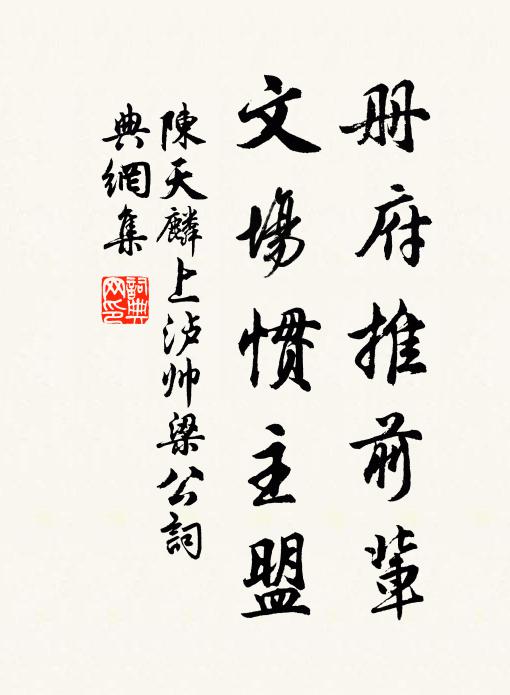 册府推前輩
文場慣主盟
陳天麟上泸帅梁公詞
典網集
詞典网印